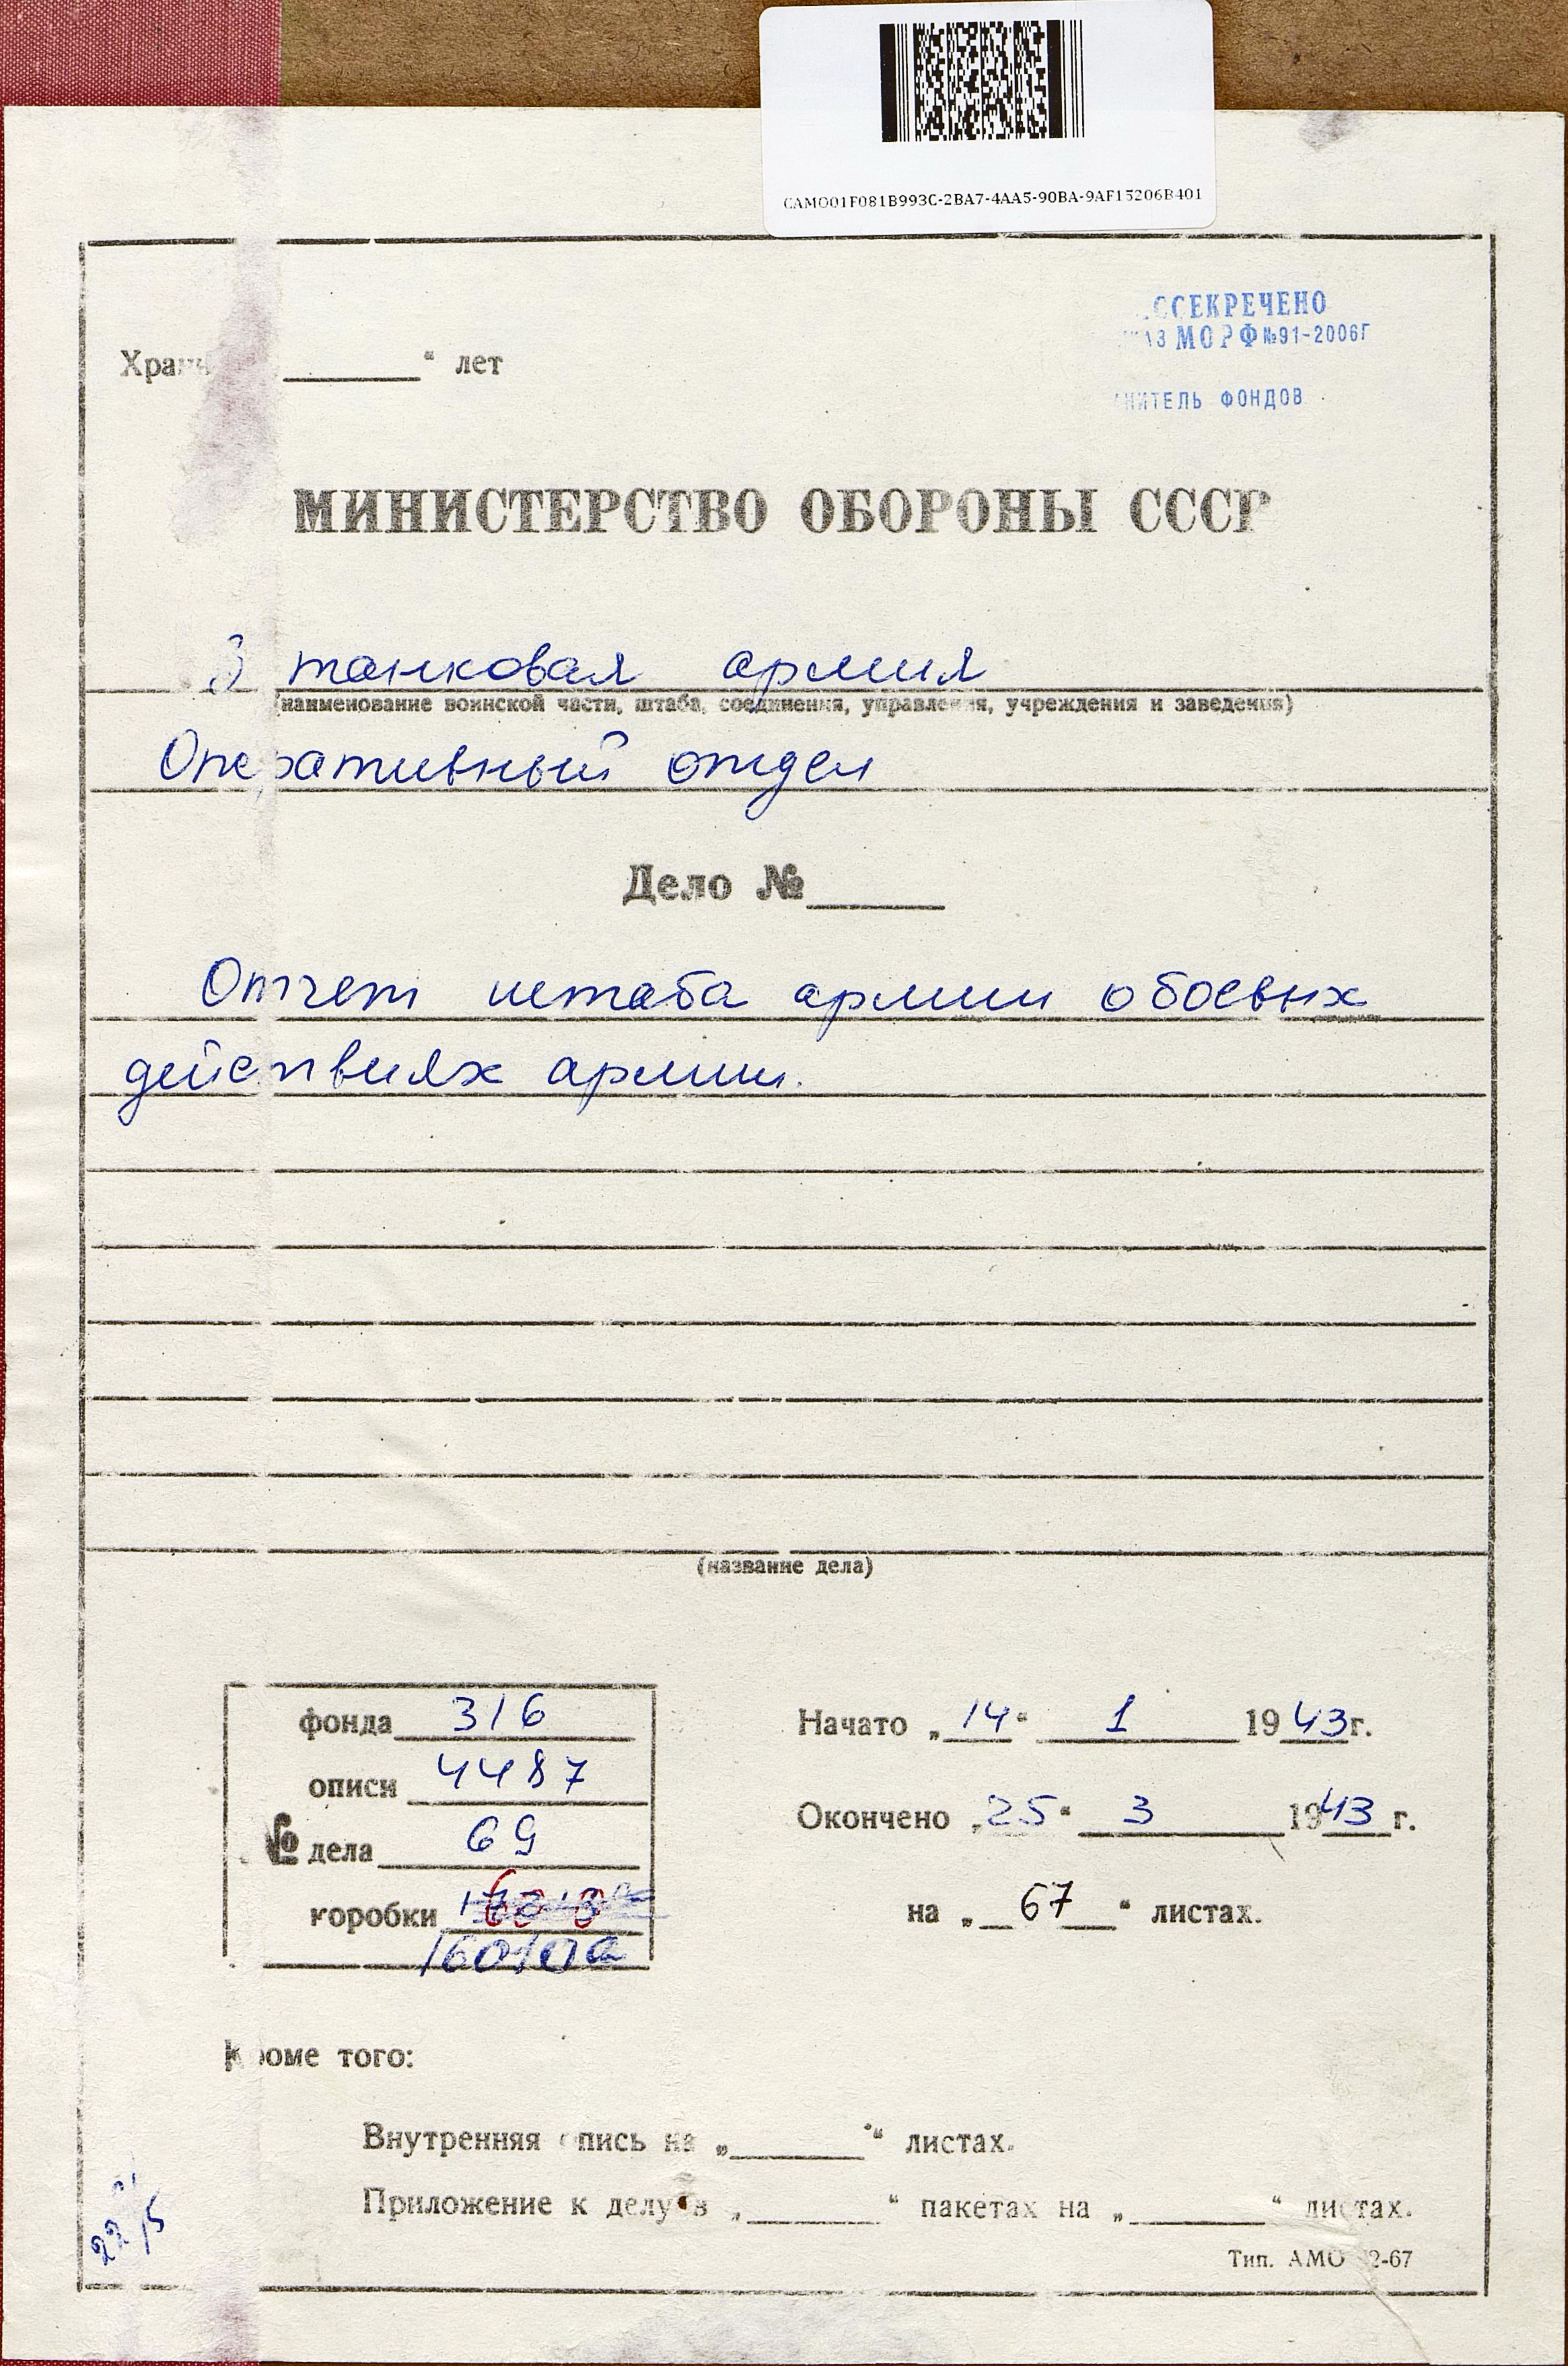 CAMO01F081B993C-2BA7-4AA5-90BA-9AF15206B401
ССЕКРЕЧЕНО
АЗ МО РФ №91-2006Г
НИТЕЛЬ ФОНДОВ
Хран " лет
МИНИСТЕРСТВО ОБОРОНЫ СССР
3 танковая армия
(наименование воинской части, штаба, соединения, управления, учреждения и заведения)
Оперативный отдел
Дело №
Отчет штаба армии о боевых
действиях армии.
(название дела)
фонда 316
описи 4487
№ дела 69
коробки
16010а
Начато „14" 1 1943г.
Окончено „25" 3 1943 г.
на „67" листах.
Кроме того:
Внутренняя опись на „ " листах.
Приложение к делу в „ " пакетах на „ " листах.
Тип. АМО 2-67